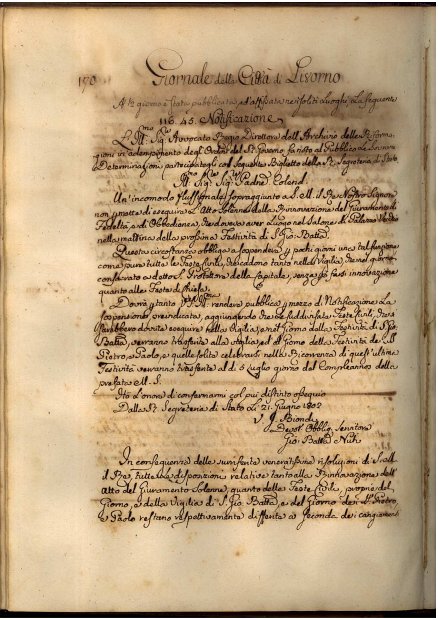 170 Giornale della Città di Livorno
A dì giorno è stata pubblicata, ed affissa nei soliti Luoghi, la seguente
116. 45. Notificazione
L'Ill.mo Sig.re Avvocato Direttore dell'Archivio delle Riforma-
gioni in adempimento degli Ordini del R. Governo, fa noto al Pubblico le Sovrane
Determinazioni partecipategli con seguente Biglietto della R. Segreteria di Stato
Ill.mo Sig.re Sig.re Padrone Colend.
Un'incomodo flussionale sopraggiunto a S. M. il Re Nostro Signore
non permette di eseguire l'Atto solenne della Rinnovazione del Giuramento di
Fedeltà, ed Obbedienza, che doveva aver luogo nel Salone di Palazzo Vecchio
nella mattina della prossima Festività di S. Gio. Batta.
Questa circostanza obbliga a sospendere per pochi giorni una tal funzione
come pure tutte le Feste Civili, che cadono tanto nella Vigilia, che nel giorno
consacrato a detto S. Protettore della Capitale, senza farsi innovazione
quanto alle Feste di Chiesa.
Dovrà pertanto VS. Ill.ma rendere pubblica per mezzo di Notificazione la
sospensione preindicata, aggiungendo che le suddivisate Feste Civili, che si
sarebbero dovute eseguire nella Vigilia, e nel Giorno della Festività di S. Gio.
Batta, verranno trasferite alla vigilia, ed al giorno della Festività dei SS.
Pietro, e Paolo, e quelle solite celebrarsi nella Ricorrenza di quest'ultima
Festività verranno trasferite al dì 5 Luglio giorno del Compleannos della
prefata M. S.
Ho l'onore di confermarmi col più distinto ossequio
Dalla R. Segreteria di Stato Li 21. Giugno 1802
Devot. Obblig. Servitore
Gio. Batta Nuti
In conseguenza delle surriferite veneratissime risoluzioni di S. M.
il Re, tutte le disposizioni relative tanto alla Rinnovazione dell'
Atto del Giuramento Solenne, quanto delle Feste Civili, proprie del
Giorno, e della Vigilia di S. Gio. Batta, e del Giorno dei SS. Pietro,
e Paolo restano respettivamente differite a seconda dei cangiamenti